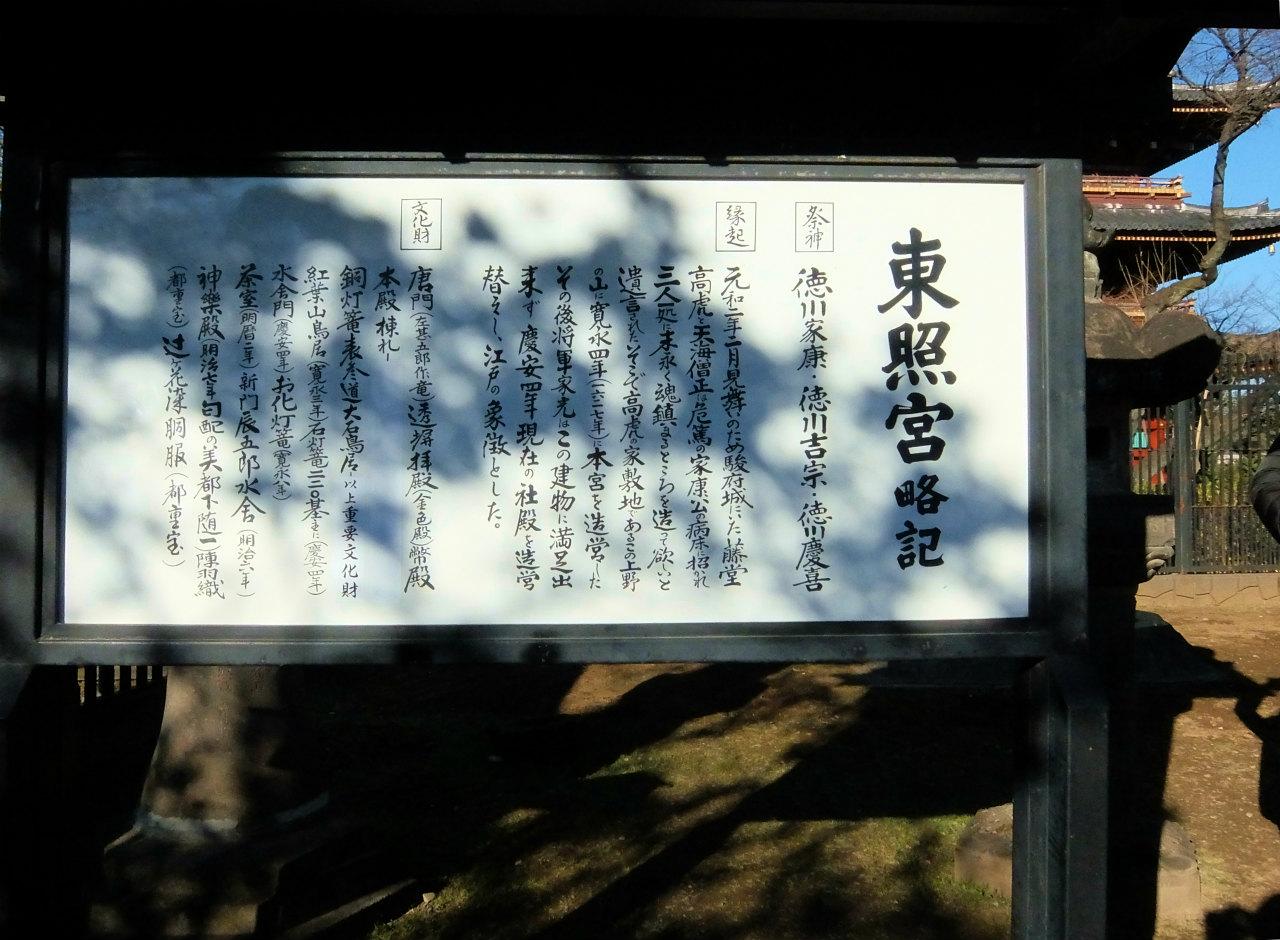 東照宮略記
祭神
徳川家康・徳川吉宗・徳川慶喜
縁起
元和二年二月見舞のため駿府城にいた藤堂
高虎と天海僧正は危篤の家康公の病床に招かれ
三人一処に末永く魂鎮まるところを造って欲しいと
遺言された。そこで高虎の家敷地であるこの上野
の山に寛永四年(一六二七年)に本宮を造営した
その後将軍家光はこの建物に満足出
来ず慶安四年現在の社殿を造営
替えし、江戸の象徴とした。
文化財
唐門(左甚五郎作竜)透塀拝殿(金色殿)幣殿
本殿棟札
銅灯篭表参道大石鳥居以上重要文化財
紅葉山鳥居(寛永三年)石灯篭二三〇基(慶安四年)
水舎門(慶安四年)お化灯篭(寛永八年)
茶室(明暦二年)新門辰五郎水舎(明治六年)
神樂殿(明治七年)勾配の美都下随一 陣羽織
(都重宝)辻が花染胴服(都重宝)